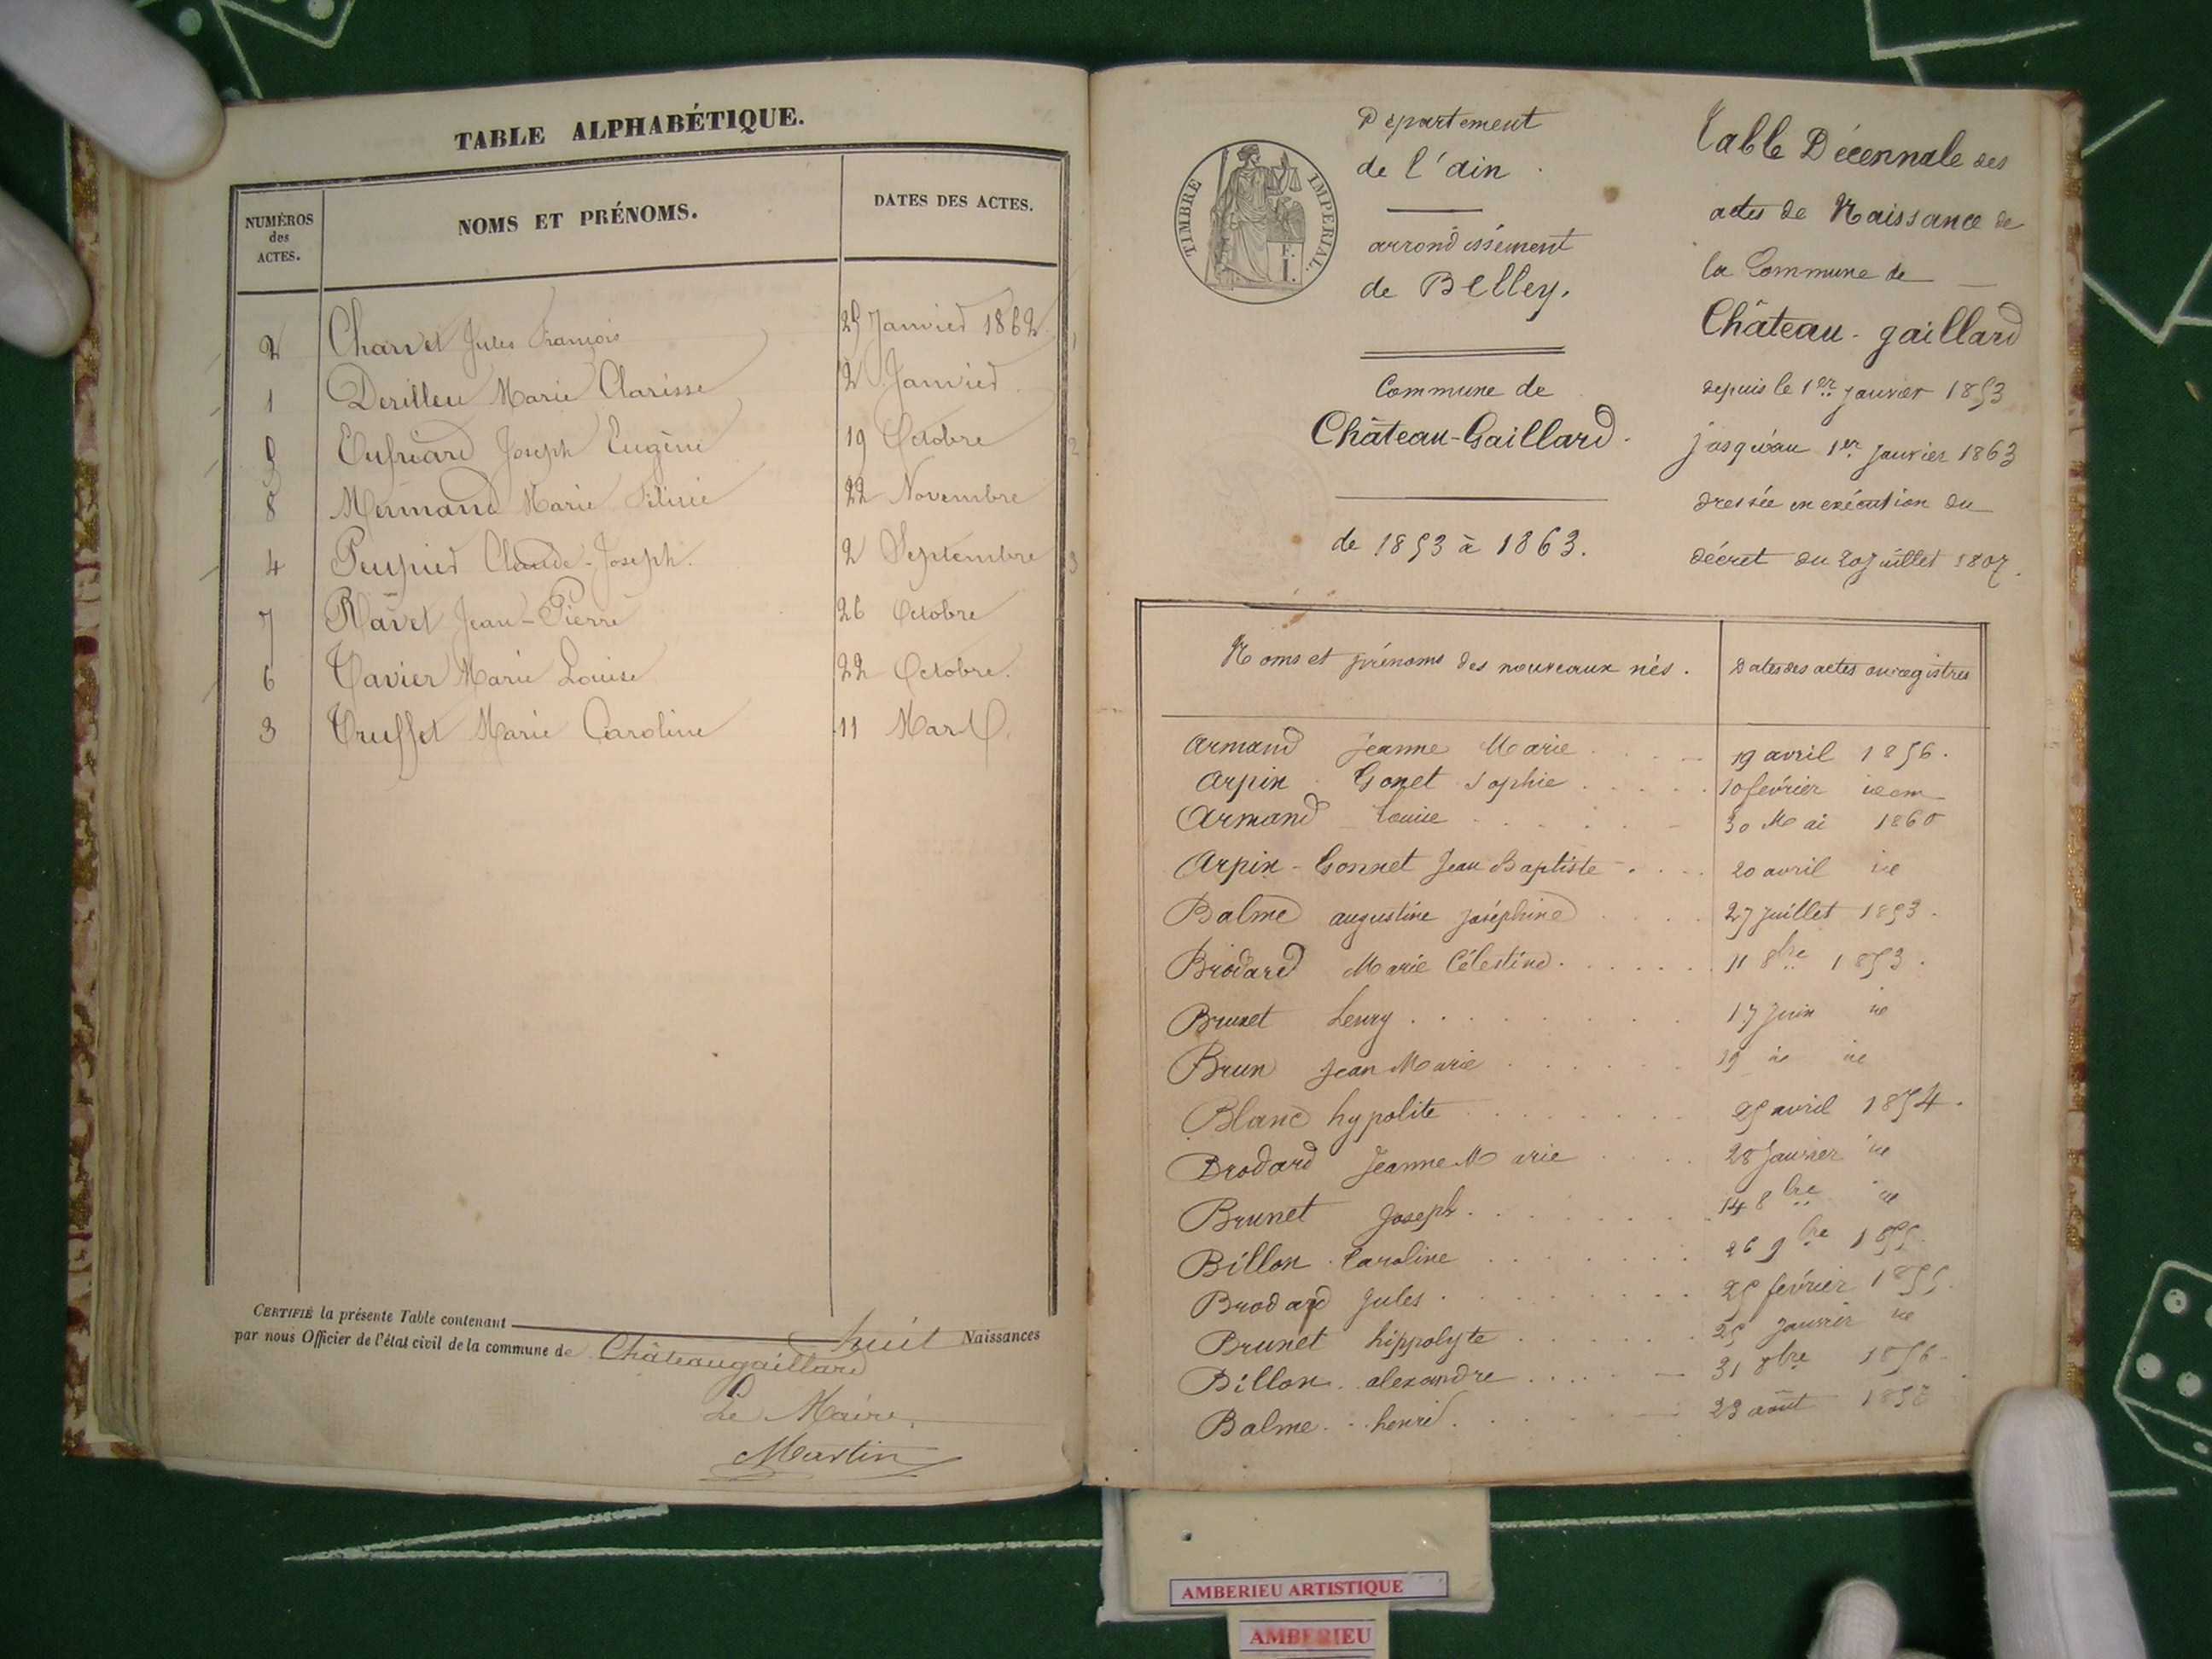 TABLE ALPHABÉTIQUE.
NUMÉROS
des
ACTES.
NOMS ET PRÉNOMS.
DATES DES ACTES.
2 Charvet Jules François 25 Janvier 1862
1 Marie Clarisse 2 Janvier
5 Joseph Eugène 19 Octobre
8 Mermand Marie 22 Novembre
4 Claude-Joseph. 2 Septembre
7 Ravet Jean-Pierre 26 Octobre
6 Tavier Marie Louise 22 Octobre.
3 Truffet Marie Caroline 11 Mars
CERTIFIÉ la présente Table contenant huit Naissances
par nous Officier de l'état civil de la commune de Châteaugaillard
Le Maire,
Martin
TIMBRE IMPERIAL.
E. I.
Département
de l'ain.
arrondissement
de Belley.
Commune de
Château-Gaillard.
de 1853 à 1863.
Table Décennale des
actes de Naissance de
la Commune de
Château-gaillard
depuis le 1er janvier 1853
jusqu'au 1er Janvier 1863
dressée en exécution du
décret du 20 juillet 1807.
Noms et prénoms des nouveaux nés. Dates des actes aux registres
Armand Jeanne Marie 19 avril 1856.
Arpin Gonet Sophie 10 février idem
Armand Louise 30 Mai 1860
Arpin-Gonnet Jean Baptiste 20 avril id
Balme augustine joséphine 27 juillet 1853.
Brodard Marie Célestine. 11 8bre 1853.
Brunet henry 17 Juin id
Brun Jean Marie 19 id id
Blanc hypolite 25 avril 1854.
Brodard Jeanne Marie 28 Janvier id
Brunet Joseph. 14 8bre id
Billon Caroline 26 9bre 1855
Brodard Jules. 25 février 1855.
Brunet hippolyte 25 Janvier id
Billon alexandre 31 8bre 1856
Balme henri. 23 août
AMBERIEU ARTISTIQUE
AMBERIEU